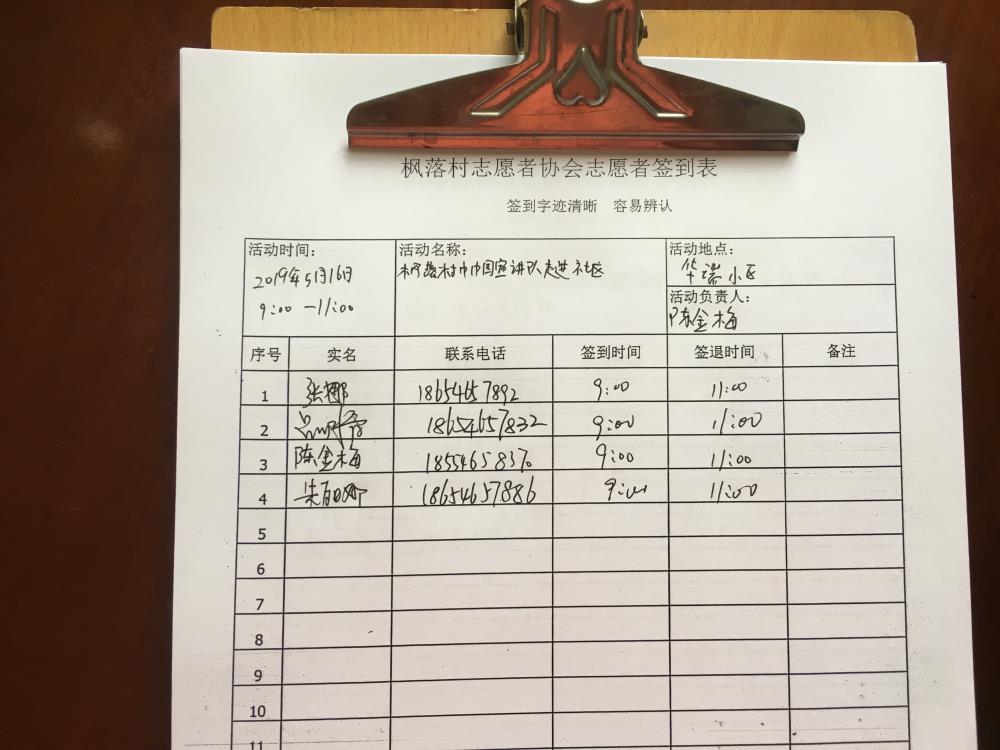 枫落村志愿者协会志愿者签到表
签到字迹清晰 容易辨认
活动时间：
2019年5月16日
9:00-11:00
活动名称：
枫落村巾帼宣讲队走进社区
活动地点：
华瑞小区
活动负责人：
陈金梅
序号 实名 联系电话 签到时间 签退时间 备注
1 张娜 18654657892 9:00 11:00
2 18654657832 9:00 11:00
3 陈金梅 1855465837 9:00 11:00
4 18654657886 9:00 11:00
5
6
7
8
9
10
11